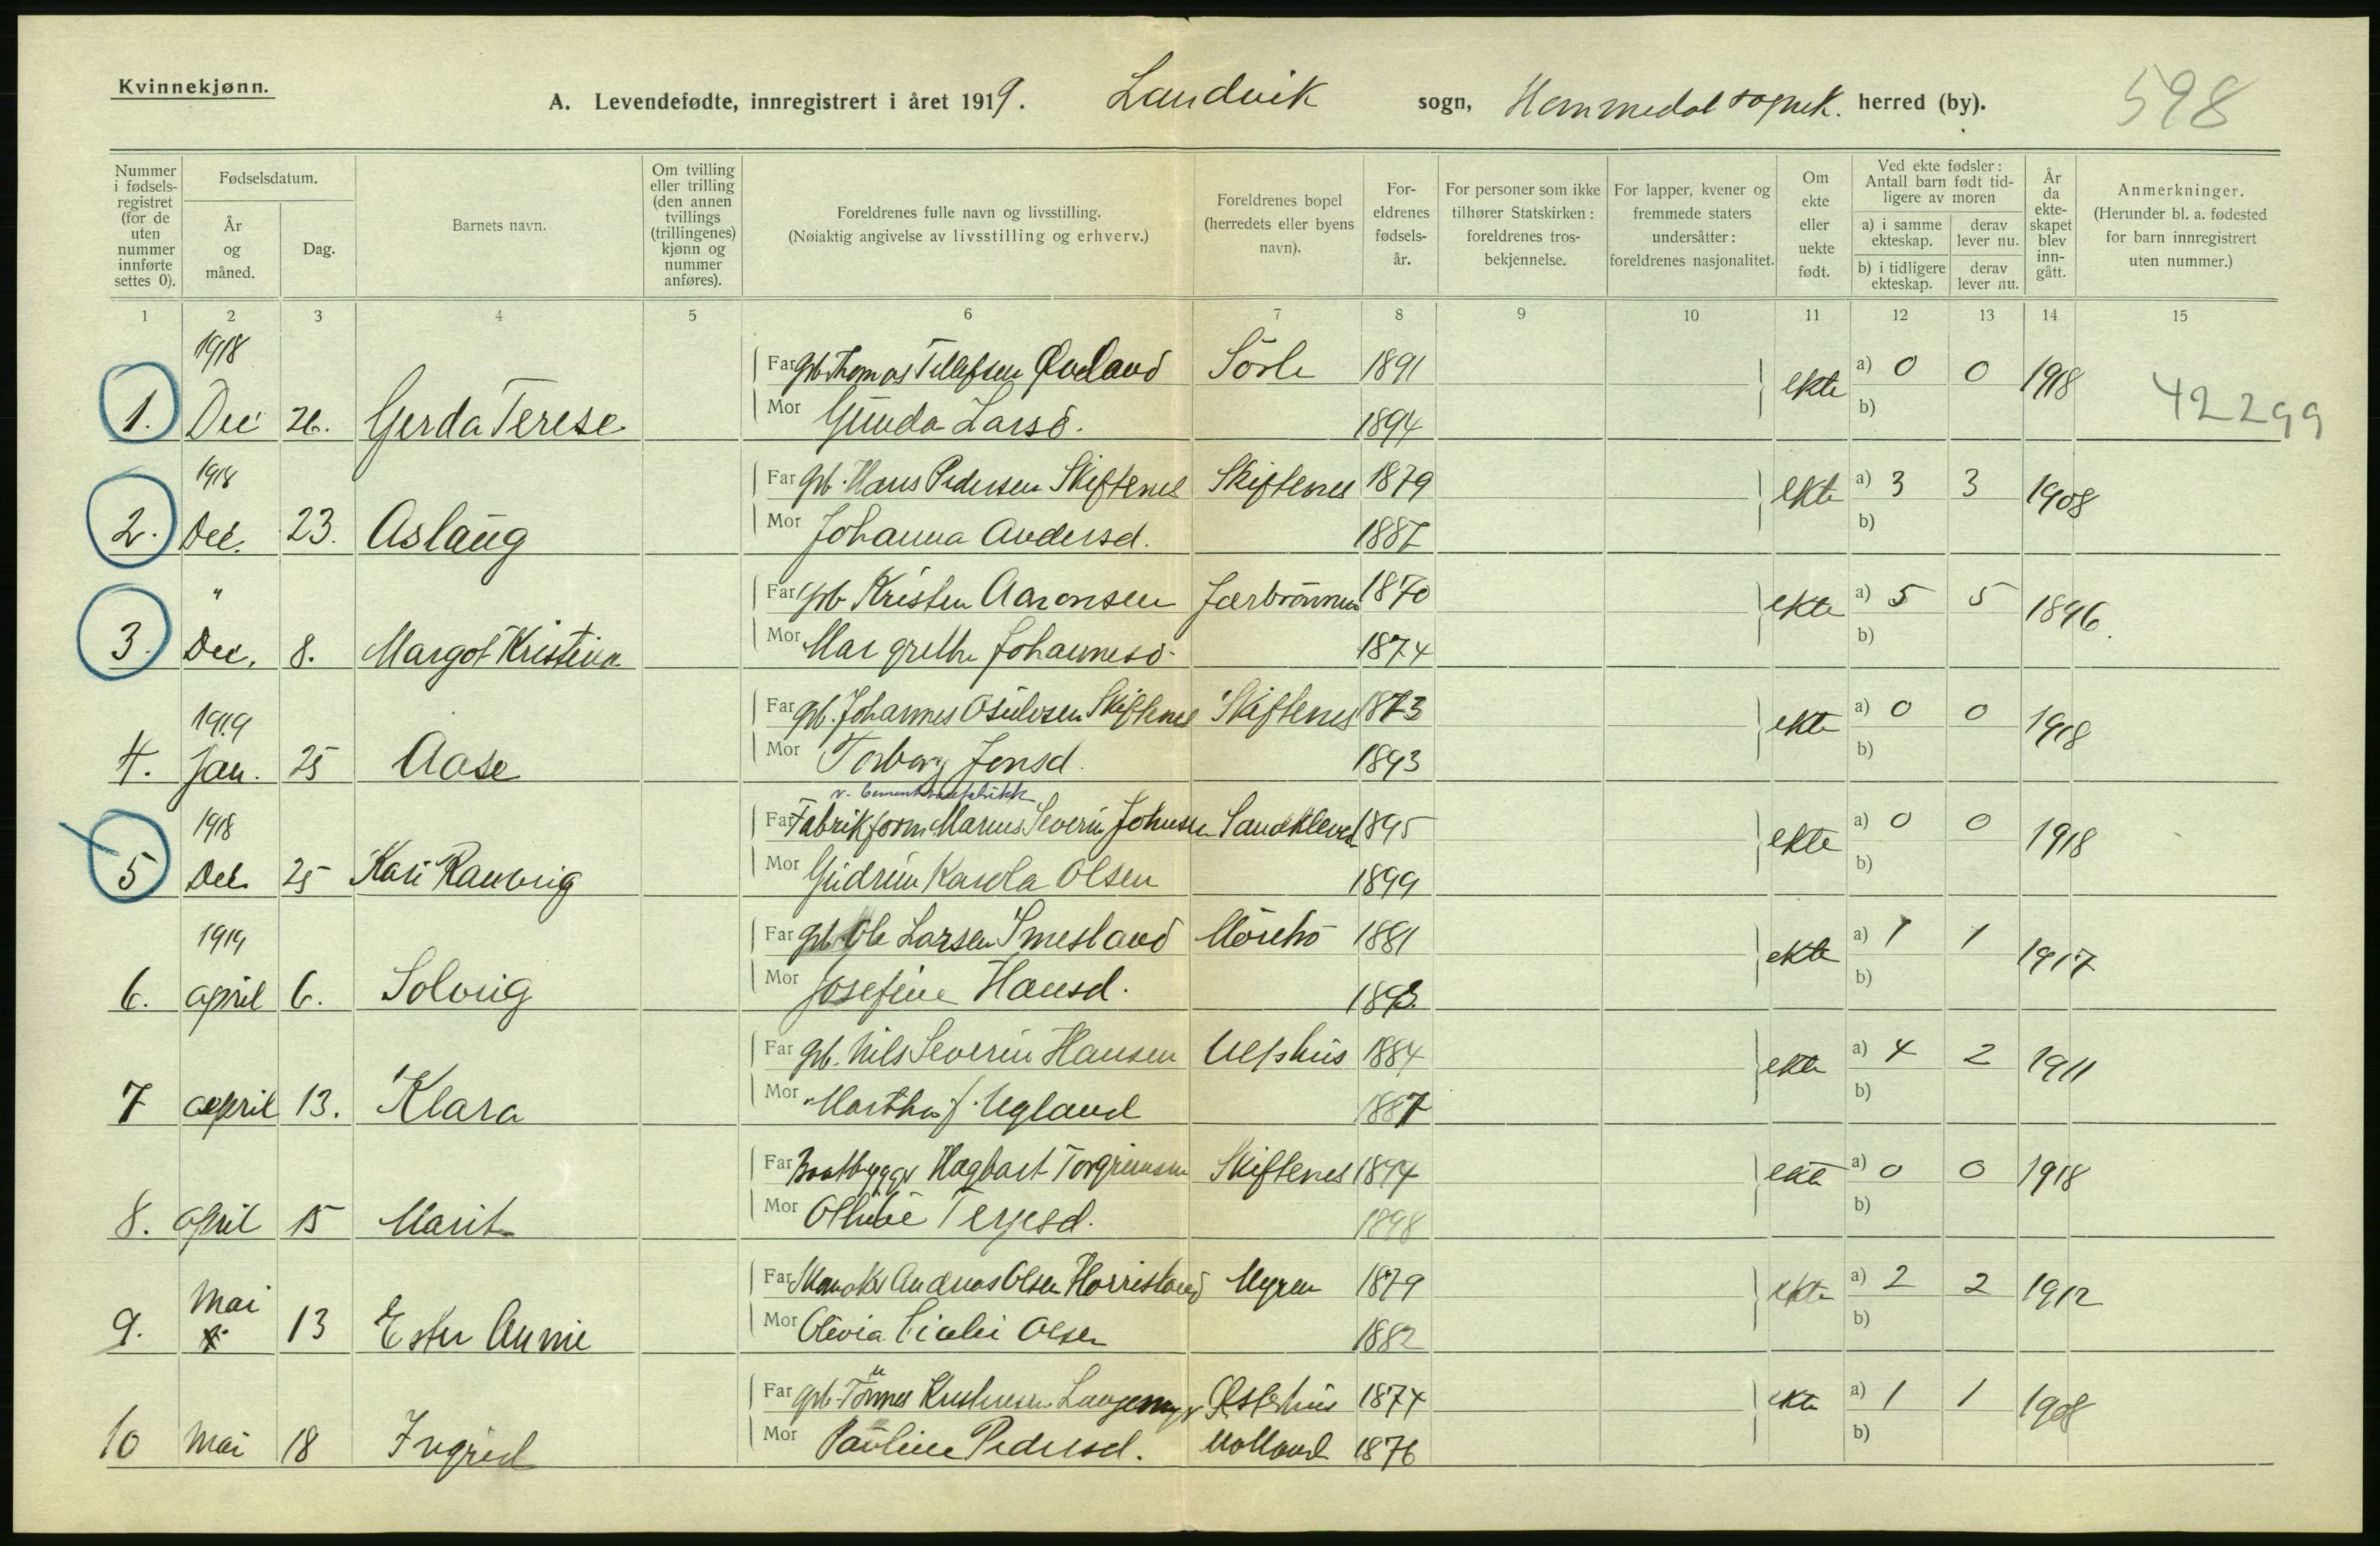 Kvinnekjønn.
A. Levendefødte, innregistrert i året 1919. Landvik sogn, herred (by). 598
Nummer i fødsels-registret (for de uten nummer innførte settes 0).
Fødselsdatum.
År og måned.
Dag.
Barnets navn.
Om tvilling eller trilling (den annen tvillings (trillingenes) kjønn og nummer anføres).
Foreldrenes fulle navn og livsstilling.
(Nøiaktig angivelse av livsstilling og erhverv.)
Foreldrenes bopel (herredets eller byens navn).
For-eldrenes fødsels-år.
For personer som ikke tilhører Statskirken: foreldrenes tros-bekjennelse.
For lapper, kvener og fremmede staters undersåtter: foreldrenes nasjonalitet.
Om ekte eller uekte født.
Ved ekte fødsler: Antall barn født tid-ligere av moren
a) i samme ekteskap.
derav lever nu.
b) i tidligere ekteskap.
derav lever nu.
År da ekte-skapet blev inn-gått.
Anmerkninger.
(Herunder bl. a. fødested for barn innregistrert uten nummer.)
1 2 3 4 5 6 7 8 9 10 11 12 13 14 15
1918
Far gb. Thomas Tellefsen Øveland Sörle 1891 ekte a) 0 0 1918 42299
1. Dec 26. Gerda Terese Mor Gunda Larsd. 1894 b)
1918
Far gb. Hans Pedersen Skiftenes Skiftenes 1879 ekte a) 3 3 1908
2. Dec. 23. Aslaug Mor Johanna Andersd. 1887 b)
"
Far gb Kristen Aaronsen 1870 ekte a) 5 5 1896.
3. Dec. 8. Margot Kristina Mor Margrethe Johannesd. 1874 b)
1919
Far gb. Johannes Osulvsen Skiftenes Skiftenes 1873 ekte a) 0 0 1918
4. Jan. 25 Aase Mor Torborg Jensd. 1893 b)
1918
Far Fabrikform. Marius Severin Johnsen 1895 ekte a) 0 0 1918
5 Dec. 25 Kari Ranveig Mor Gudrun Karola Olsen 1899 b)
1919
Far gb Ole Larsen Smesland 1881 ekte a) 1 1 1917
6. april 6. Solveig Mor Josefine Hansd. 1893 b)
Far gb. Nils Severin Hansen 1884 ekte a) 4 2 1911
7 april 13. Klara Mor Martha J. Ugland 1887 b)
Far Baatbygger Hagbart Torgrimsen Skiftenes 1894 ekte a) 0 0 1918
8. april 15 Marit Mor Terjesd. 1898 b)
Far Andreas Olsen Myren 1879 ekte a) 2 2 1912
9. Mai 13 Ester Annie Mor Olevia Olsen 1882 b)
Far gb. Tönnes 1874 ekte a) 1 1 1908
10 Mai 18 Ingrid Mor Pauline Pedersd. Molland 1876 b)